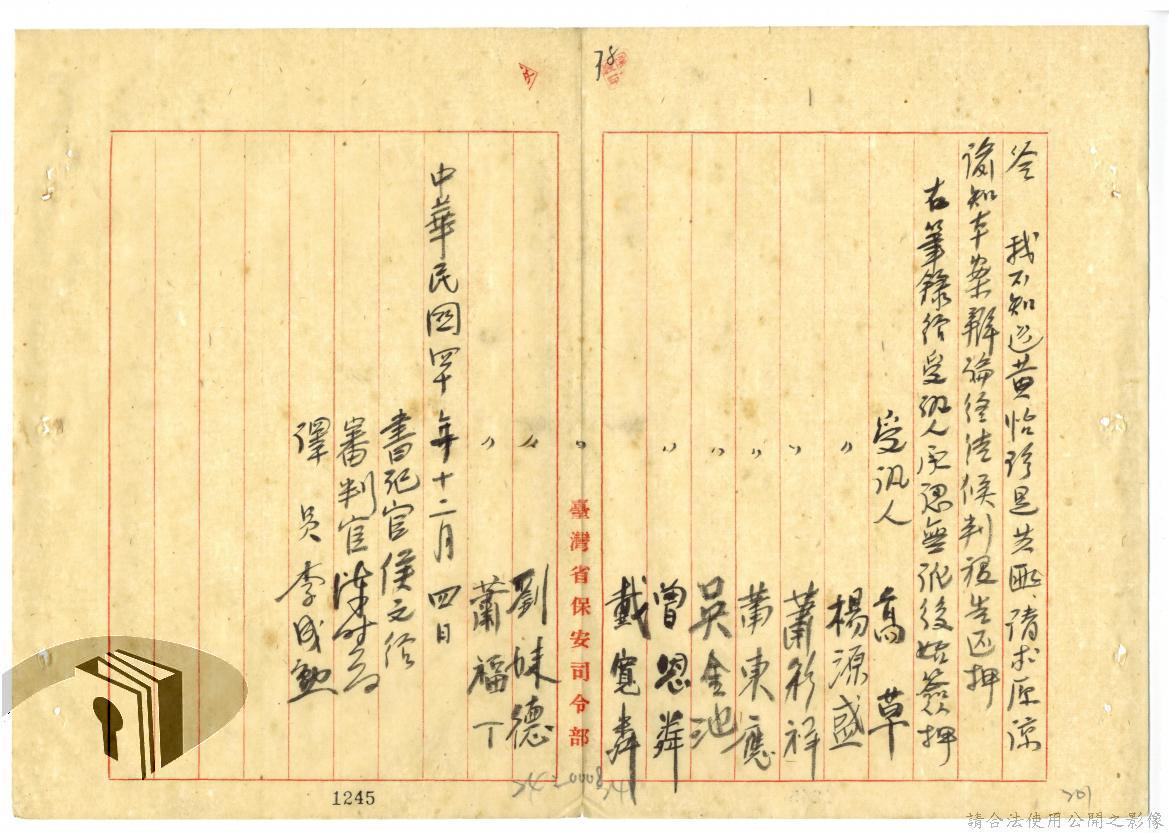 78
答 我不知道黄怡珍是共匪,請求原諒
諭知本案辯論終結候判被告还押
右筆錄経受訊人承認無訛後始簽押
受訊人 高草
〃 楊源盛
〃 蕭彩祥
〃 蕭東應
〃 吳金池
〃 曾恩粦
〃 戴寬粦
臺灣省保安司令部
〃 劉妹德
〃 蕭福丁
中華民國四十年十二月四日
書記官侯文信
審判官
譯員李成勳
1245
201
請合法使用公開之影像